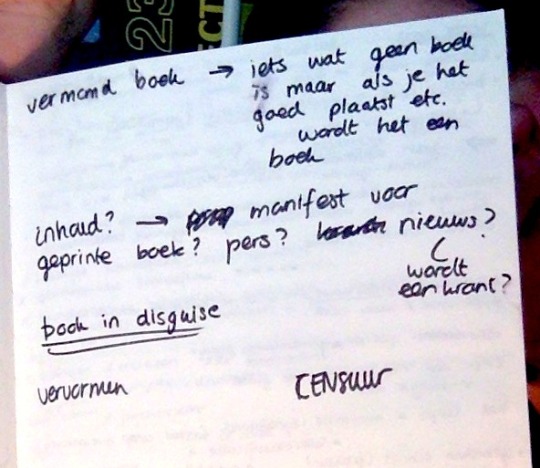 23
ECT
vermomd boek → iets wat geen boek
is maar als je het
goed plaatst etc.
wordt het een
boek
inhoud? → manifest voor
geprinte boek? pers? nieuws?
wordt
een krant?
book in disguise
vervormen
CENSUUR